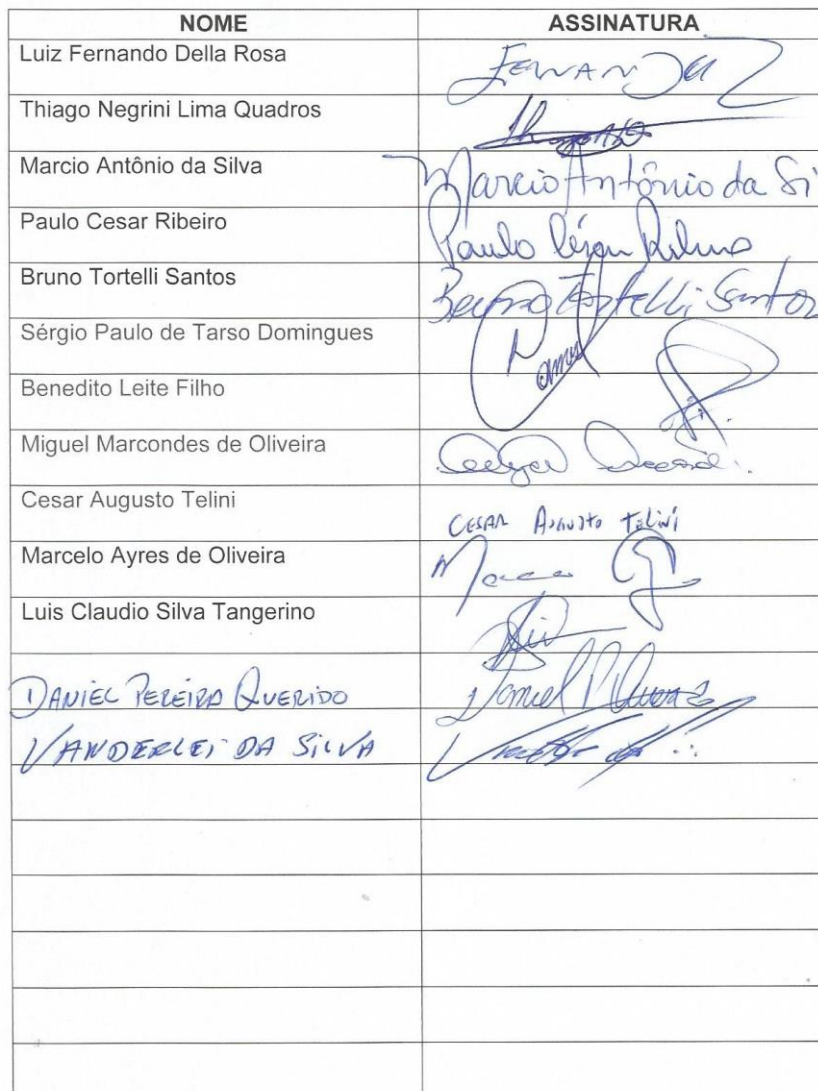 NOME ASSINATURA
Luiz Fernando Della Rosa
Thiago Negrini Lima Quadros
Marcio Antônio da Silva Marcio Antônio da Si
Paulo Cesar Ribeiro Paulo César
Bruno Tortelli Santos Bruno Tortelli Santos
Sérgio Paulo de Tarso Domingues
Benedito Leite Filho
Miguel Marcondes de Oliveira
Cesar Augusto Telini CESAR AUGUSTO TELINI
Marcelo Ayres de Oliveira
Luis Claudio Silva Tangerino
DANIEL PEREIRA QUERIDO Daniel P.
VANDERLEI DA SILVA